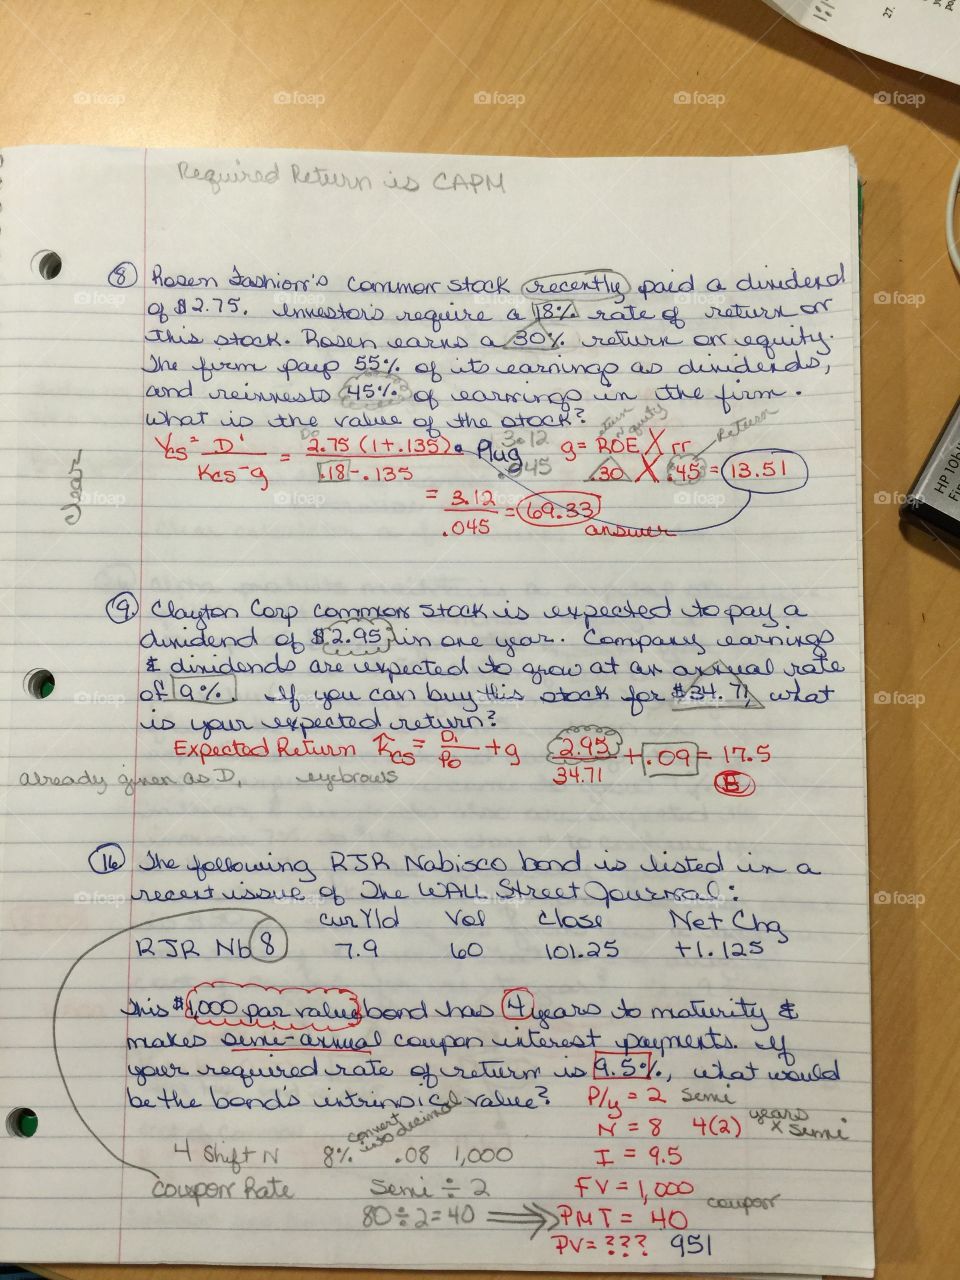 Required Return is CAPM
8 Rosen Fashion's common stock recently paid a dividend
of $2.75. Investors require a 18% rate of return on
this stock. Rosen earns a 30% return on equity.
The firm pays 55% of its earnings as dividends,
and reinvests 45% of earnings in the firm.
What is the value of the stock?
Vcs = D' / Kcs-g = Do 2.75 (1+.135) / .18-.135 Plug 3.12 .045
g = ROE X rr return on equity Return
.30 X .45 = 13.51
= 3.12 / .045 = 69.33 answer
9. Clayton Corp common stock is expected to pay a
dividend of $2.95 in one year. Company earnings
& dividends are expected to grow at an annual rate
of 9%. If you can buy this stock for $34.71, what
is your expected return?
Expected Return Kcs = D1 / Po + g 2.95 / 34.71 + .09 = 17.5
already given as D, eyebrows E
16 The following RJR Nabisco bond is listed in a
recent issue of The WALL Street Journal:
cur Yld Vol Close Net Chg
RJR Nb 8 7.9 60 101.25 +1.125
This $1,000 par value bond has 4 years to maturity &
makes semi-annual coupon interest payments. If
your required rate of return is 9.5%, what would
be the bond's intrinsic value? P/y = 2 Semi
convert into decimal N = 8 4(2) years x semi
4 Shift N 8% .08 1,000 I = 9.5
Coupon Rate Semi ÷ 2 FV = 1,000
80 ÷ 2 = 40 PMT = 40 coupon
PV = ??? 951
foap
27.
HP 10b